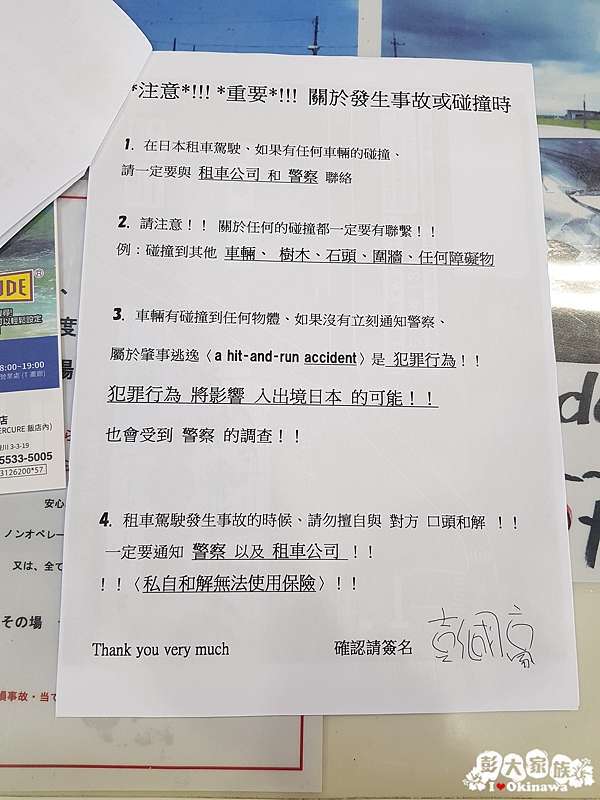 *注意*!!! *重要*!!! 關於發生事故或碰撞時
1. 在日本租車駕駛、如果有任何車輛的碰撞、
請一定要與 租車公司 和 警察 聯絡
2. 請注意！！ 關於任何的碰撞都一定要有聯繫！！
例：碰撞到其他 車輛、 樹木、石頭、圍牆、任何障礙物
3. 車輛有碰撞到任何物體、如果沒有立刻通知警察、
屬於肇事逃逸〈a hit-and-run accident〉是 犯罪行為！！
犯罪行為 將影響 入出境日本 的可能！！
也會受到 警察 的調查！！
4. 租車駕駛發生事故的時候、請勿擅自與 對方 口頭和解 ！！
一定要通知 警察 以及 租車公司 ！！
！！〈私自和解無法使用保險〉！！
Thank you very much
確認請簽名
UDE®
8:00~19:00
店
ERCURE 飯店內)
川 3-3-19
5533-5005
3126200*57
度
場
安心
ノンオペレー
又は、全て
その場
損事故・当て
彭大家族
I❤Okinawa